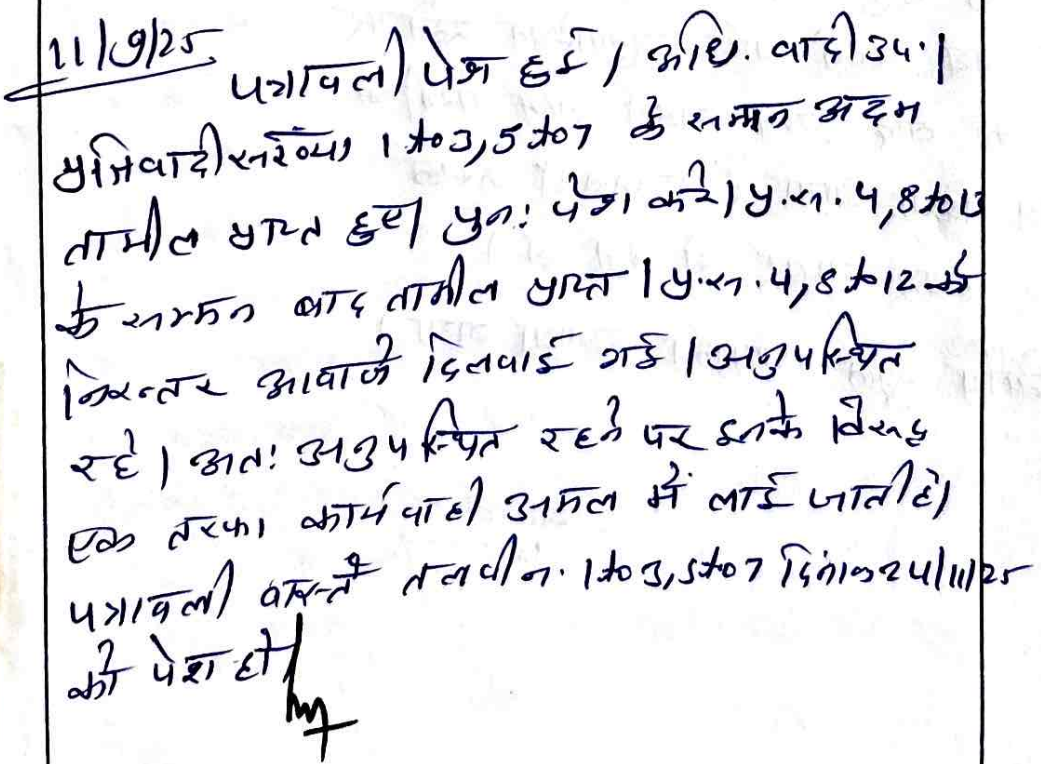 11/9/25
पत्रावली पेश हुई। अधि. वादी उप.।
प्रतिवादी संख्या 1 to 3, 5 to 7 के सम्मन अदम
तामील प्राप्त हुए। पुनः पेश करे। प्र.सं. 4, 8 to 13
के सम्मन बाद तामील प्राप्त। प्र.सं. 4, 8 to 12 को
निरन्तर आवाजें दिलवाई गई। अनुपस्थित
रहे। अतः अनुपस्थित रहने पर इनके विरूद्ध
एक तरफा कार्यवाही अमल में लाई जाती है।
पत्रावली वास्ते तलबी न. 1 to 3, 5 to 7 दिनांक 24/11/25
को पेश हो।